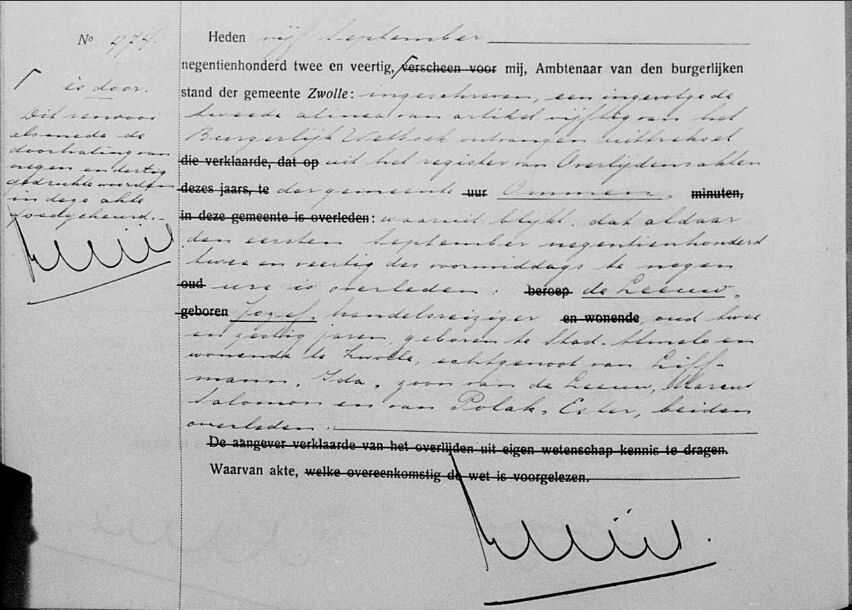 No 474.
Heden vijf September
negentienhonderd twee en veertig, verscheen voor mij, Ambtenaar van den burgerlijken
stand der gemeente Zwolle: ingeschreven, een ingevolge de
tweede alinea van artikel vijftig van het
Burgerlijk Wetboek ontvangen uittreksel
die verklaarde, dat op uit het register van Overlijdensakten
dezes jaars, te der gemeente uur Ommen, minuten,
in deze gemeente is overleden: waaruit blijkt, dat aldaar
den eersten September negentienhonderd
twee en veertig des voormiddags te negen
oud ure is overleden: beroep de Leeuw,
geboren Jozef, handelsreiziger en wonende oud twee
en zestig jaren, geboren te Stad-Almelo en
wonende te Zwolle, echtgenoot van Liff-
mann, Ida, zoon van de Leeuw, Marcus
Salomon en van Polak, Ester, beiden
overleden.
De aangever verklaarde van het overlijden uit eigen wetenschap kennis te dragen.
Waarvan akte, welke overeenkomstig de wet is voorgelezen.
is door.
Dit renvooi
alsmede de
doorhaling van
negen en dertig
gedrukte woorden
in deze akte
goedgekeurd.